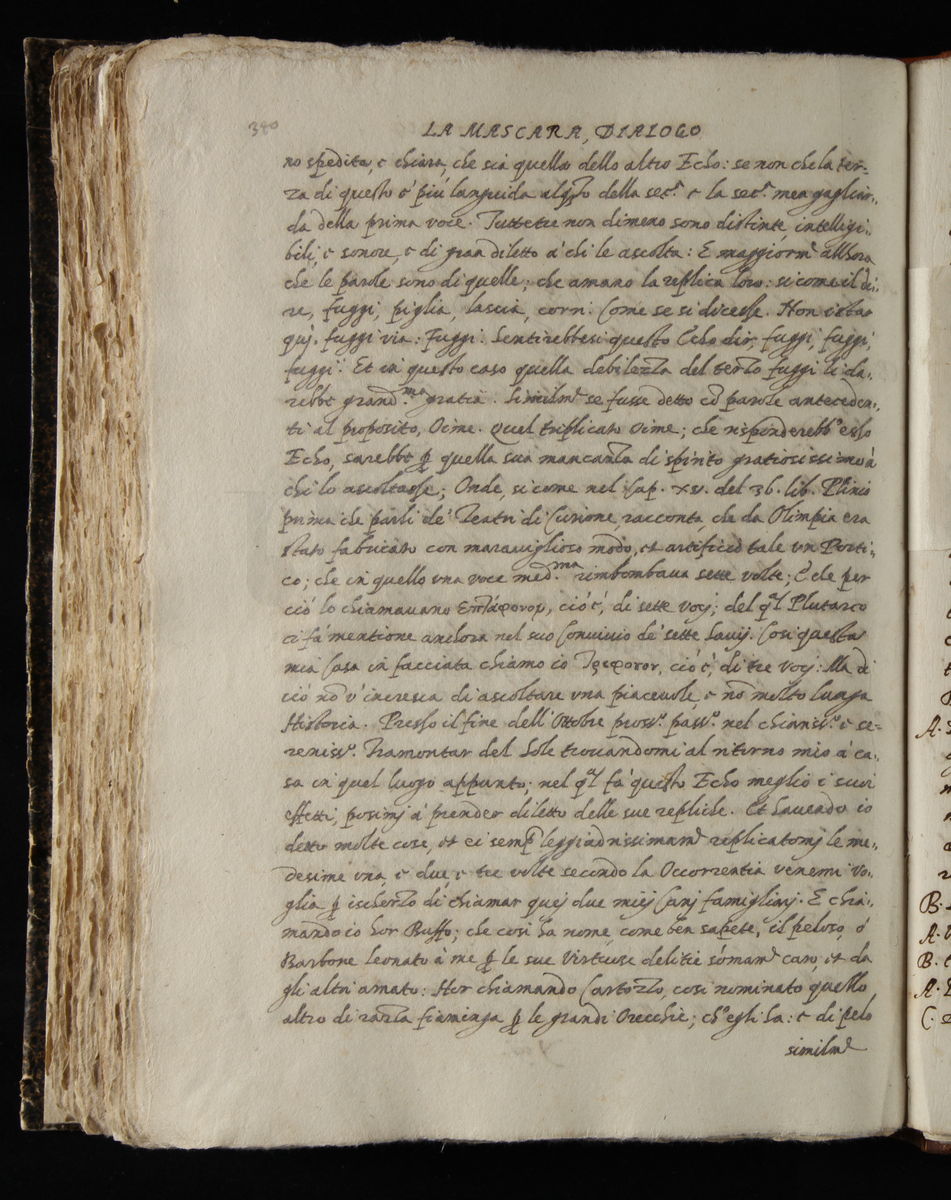 380
LA MASCARA, DIALOGO
no spedita, e chiara, che sia quella dello altro Echo: se non che la ter-
za di questo è più languida alqto della secᵃ. e la secᵃ. men gagliar-
da della prima voce. Tuttetre non dimeno sono distinte intelligi-
bili, e sonore, e di gran diletto à chi le ascolta: E maggiormᵗᵉ allhora
che le parole sono di quelle; che amano la replica loro: si come il di-
re, fuggi, piglia, lascia, corri. Come se si dicesse. Non istar
quj. fuggi via: fuggi: Sentirebbesi questo Echo dir, fuggi, fuggi,
fuggi. Et in questo caso quella debilezza del terzo fuggi li da-
rebbe grandᵐᵃ gratia. Similmᵗᵉ se fusse detto cō parole anteceden-
ti al proposito, Oime. Quel triplicato Oime; che rispönderebb'esso
Echo, sarebbe ꝑ quella sua mancanza di spirito gratiosissimo à
chi lo ascoltasse; Onde, si come nel Cap. xv. del 36. lib. Plinio
prima che parli de' Teatri di Curione, racconta, che da Olimpia era
stato fabricato con maraviglioso modo, et artificio tale un Porti-
co; che in quello una voce medᵐᵃ rimbombaua sette volte; E che per
ciò lo chiamauano Επτάφονον, cio è, di sette vocj; del qˡ Plutarco
ci fà mentione anchora nel suo Conuiuio de' sette Sauij. Cosi questa
mia Casa in facciata chiamo io Τρεφονον, cio è, di tre vocj: Ma di
ciò nō v'incresca di ascoltare una piaceuole, e nō molto lunga
Historia. Presso il fine dell'Ottobre prossᵒ. passᵒ. nel chiarissᵒ. e se-
renissᵒ. Tramontar del Sole trouandomi al ritorno mio à ca-
sa in quel luogo appunto; nel qˡ fà questo Echo meglio i suoi
effetti, posimj à prender diletto delle sue repliche. Et hauendo io
detto molte cose, et ei sempꝛ leggiadrissimamᵗᵉ replicatomj le me-
desime una, e due, e tre volte secondo la Occorrentia venemi vo-
glia ꝑ ischerzo di chiamar quej due miej Canj famigliarj. E chia-
mando io hor Buffo; che così ha nome, come ben sapete, il peloso, ò
Barbone leonato à me ꝑ le sue Virtuose delitie sōmamᵗᵉ caro, et da
gli altri amato: Hor chiamando Cartozzo, così nominato quello
altro di razza fiaminga ꝑ le grandi Orecchie; ch'egli ha: e di pelo
similmᵗᵉ